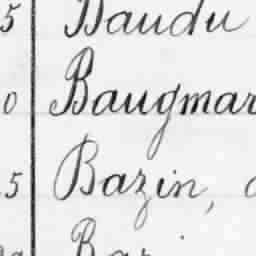 5 Baudu
0 Baugmar
5 Bazin,